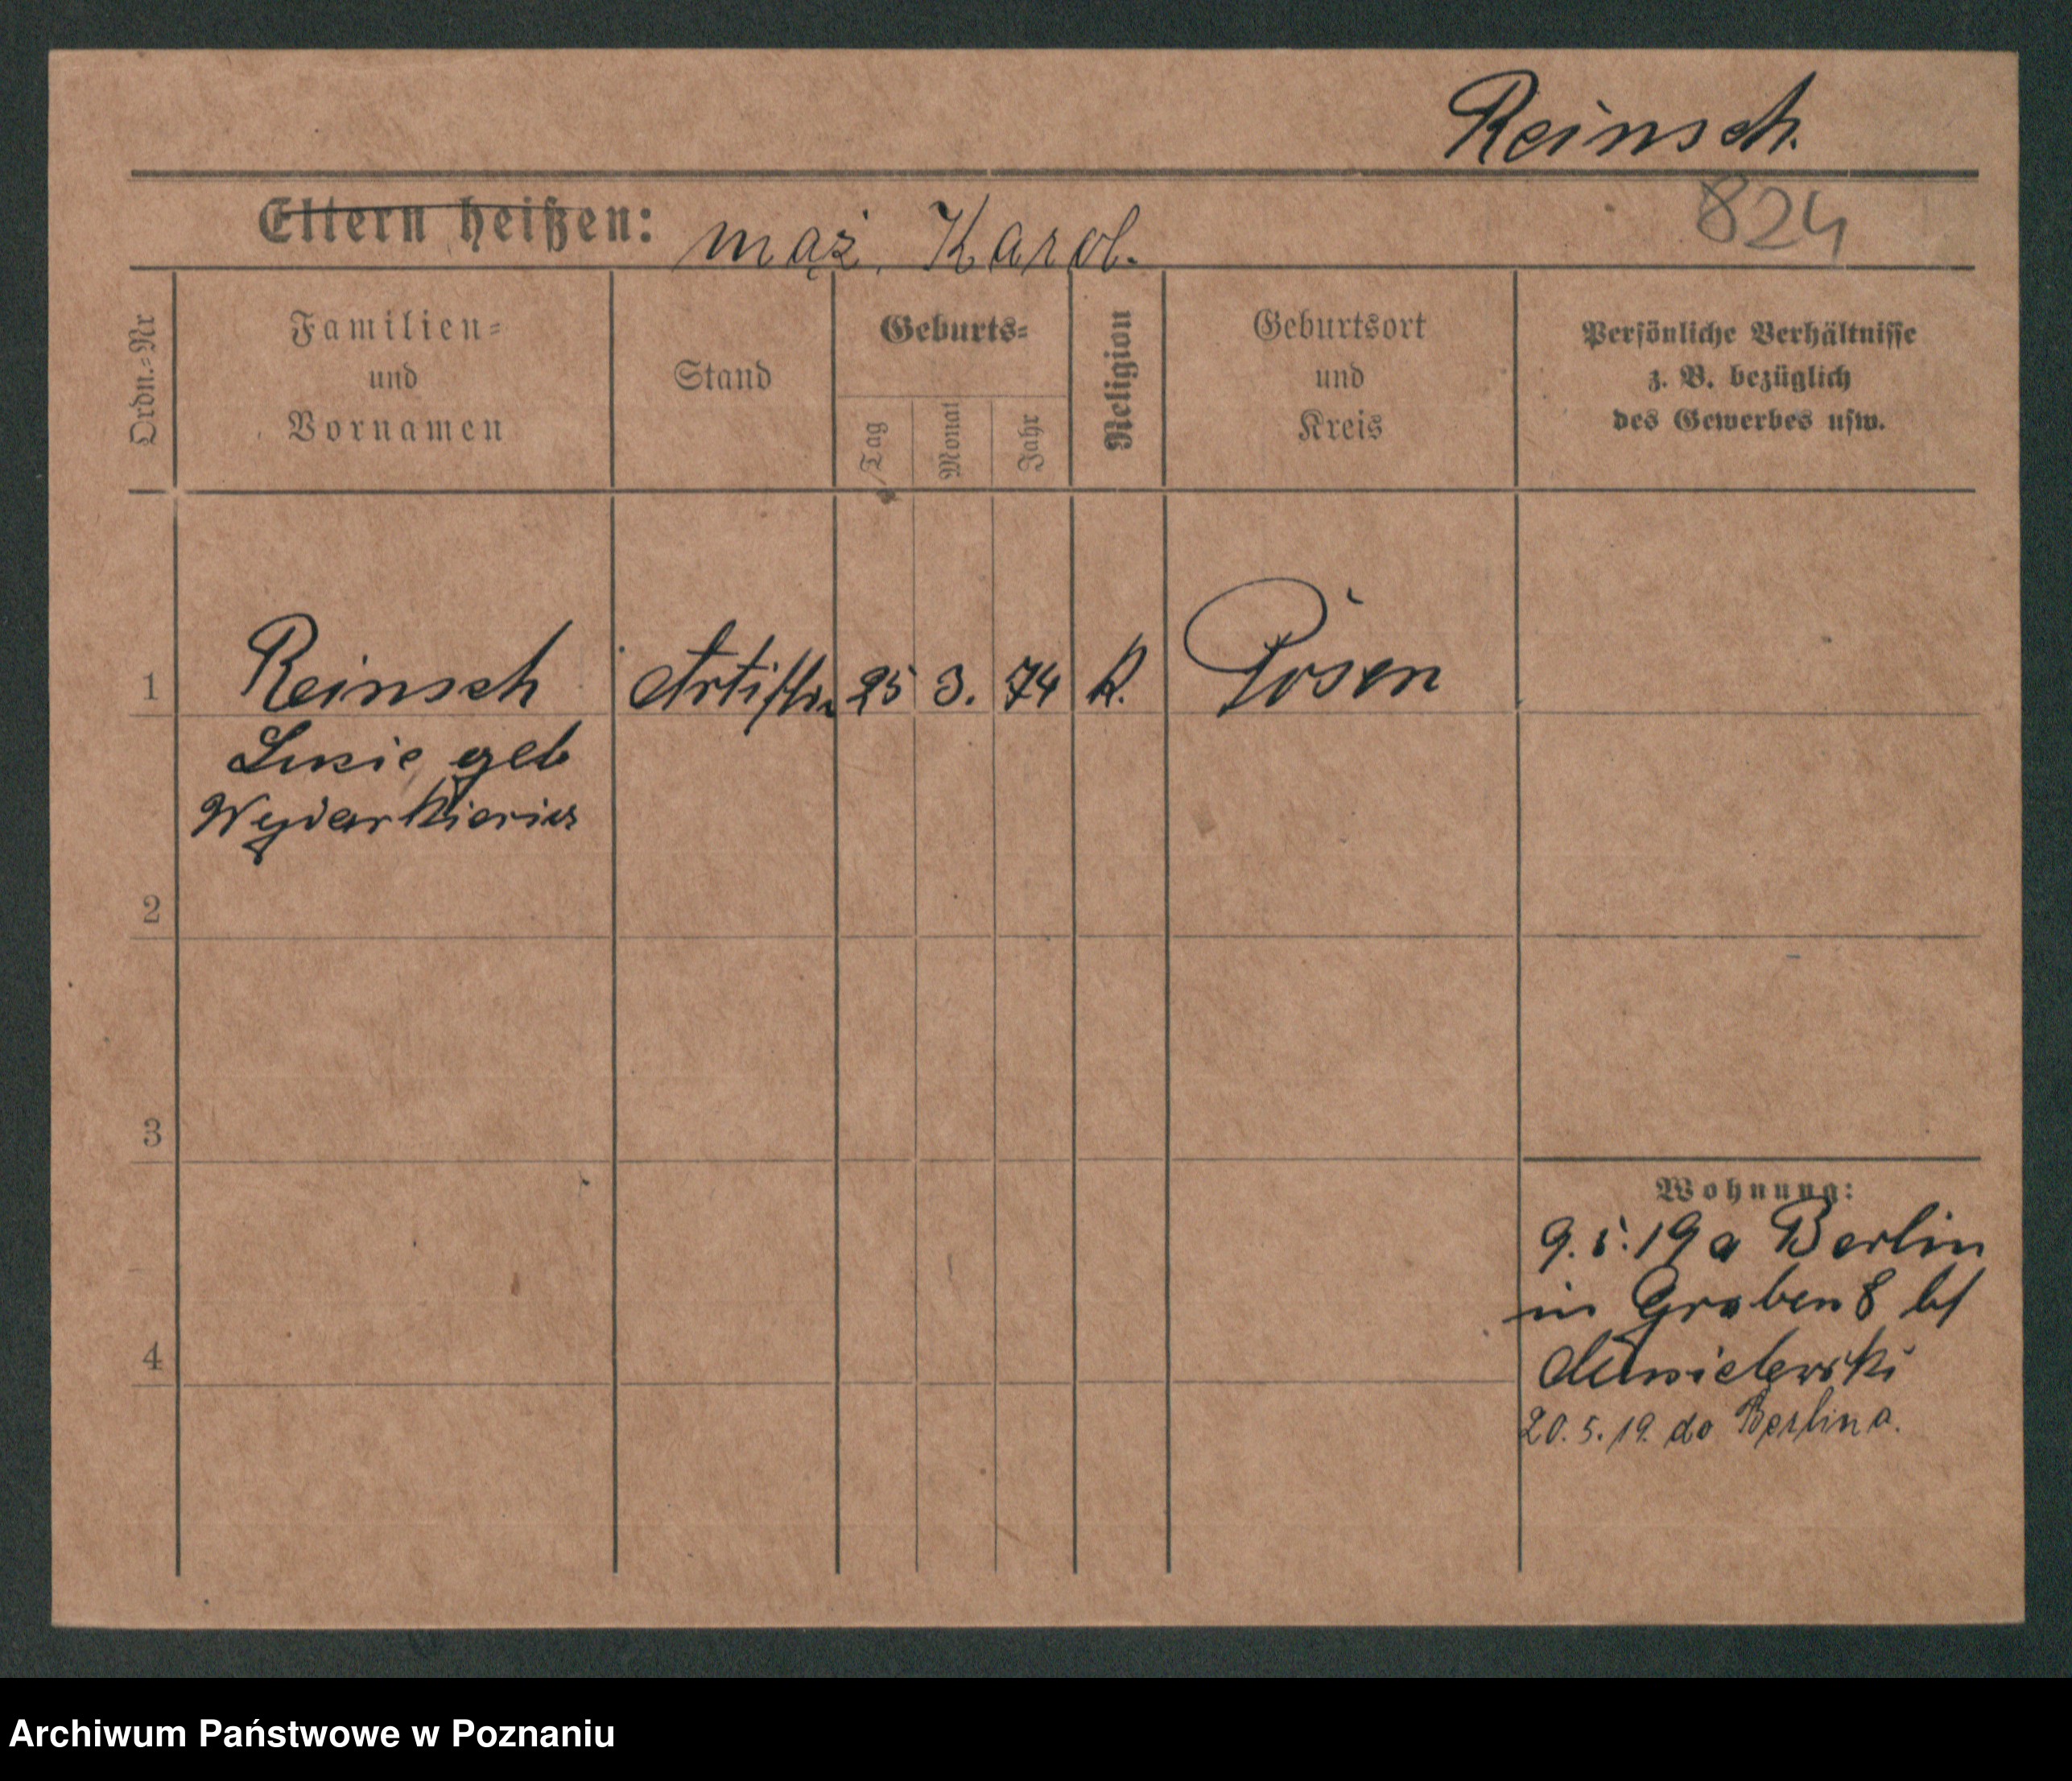 Reinsch.
824
Eltern heißen: mąż. Karol.
Ordn.=Nr
Familien=
und
Vornamen
Stand
Geburts=
Tag
Monat
Jahr
Religion
Geburtsort
und
Kreis
Persönliche Verhältnisse
z. B. bezüglich
des Gewerbes usw.
1 Reinsch 25 3. 74 K. Posen
geb
2
3
4
Wohnung:
9.5.19 a Berlin
in Graben 8 bf
20.5.19. do Berlina.
Archiwum Państwowe w Poznaniu